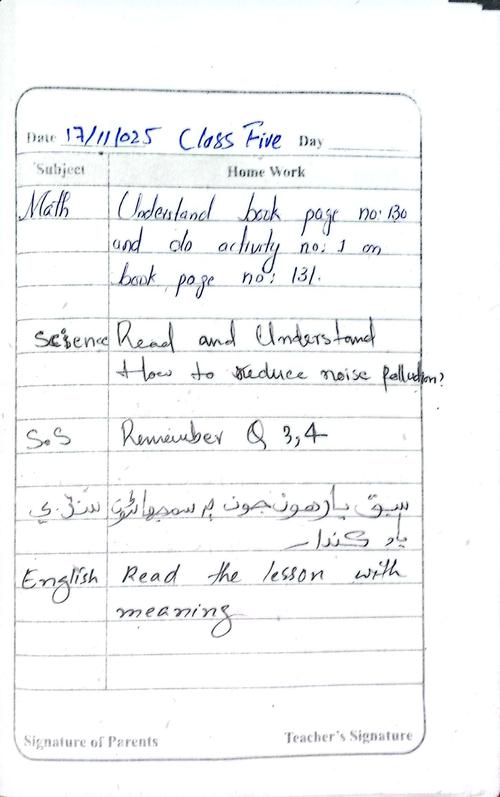 Date 17/11/025 Class Five Day
Subject Home Work
Math Understand book page no: 130
and do activity no: 1 on
book page no: 131.
Science Read and Understand
How to reduce noise pollution?
S.S Remember Q 3,4
سنڌي سبق يارهون جون
ياد ڪندا
English Read the lesson with
meaning
Signature of Parents Teacher's Signature